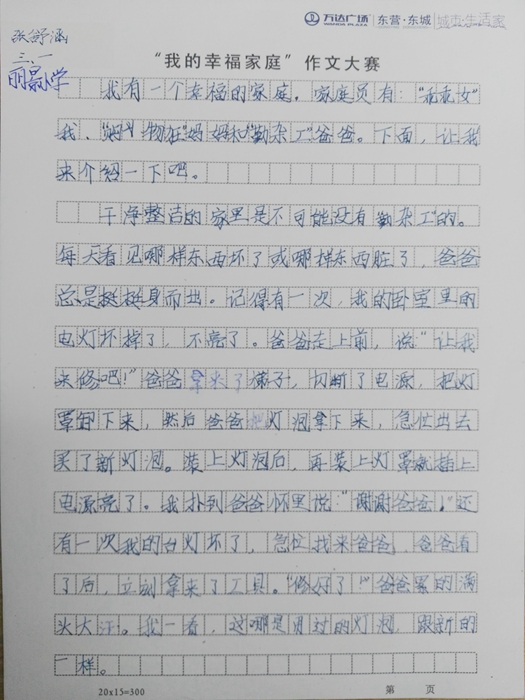 万达广场 WANDA PLAZA 东营·东城 城市·生活家
张舒涵
三、一
“我的幸福家庭”作文大赛
明景小学
我有一个幸福的家庭。家庭员有：“乖乖女”
我、“购物狂”妈妈和“勤杂工”爸爸。下面，让我
来介绍一下吧。
干净整洁的家里是不可能没有勤杂工的。
每天看见哪样东西坏了或哪样东西脏了，爸爸
总是挺挺身而出。记得有一次，我的卧室里的
电灯坏掉了，不亮了。爸爸走上前，说“让我
来修吧！”爸爸拿来了梯子，切断了电源，把灯
罩卸下来，然后爸爸把灯泡拿下来，急忙出去
买了新灯泡。装上灯泡后，再装上灯罩就插上
电源亮了。我扑到爸爸怀里说：“谢谢爸爸！”还
有一次我的台灯坏了，急忙找来爸爸，爸爸看
了后，立刻拿来了工具。“修好了！”爸爸累的满
头大汗。我一看，这哪是用过的灯泡，跟新的
一样。
20x15=300 第 页